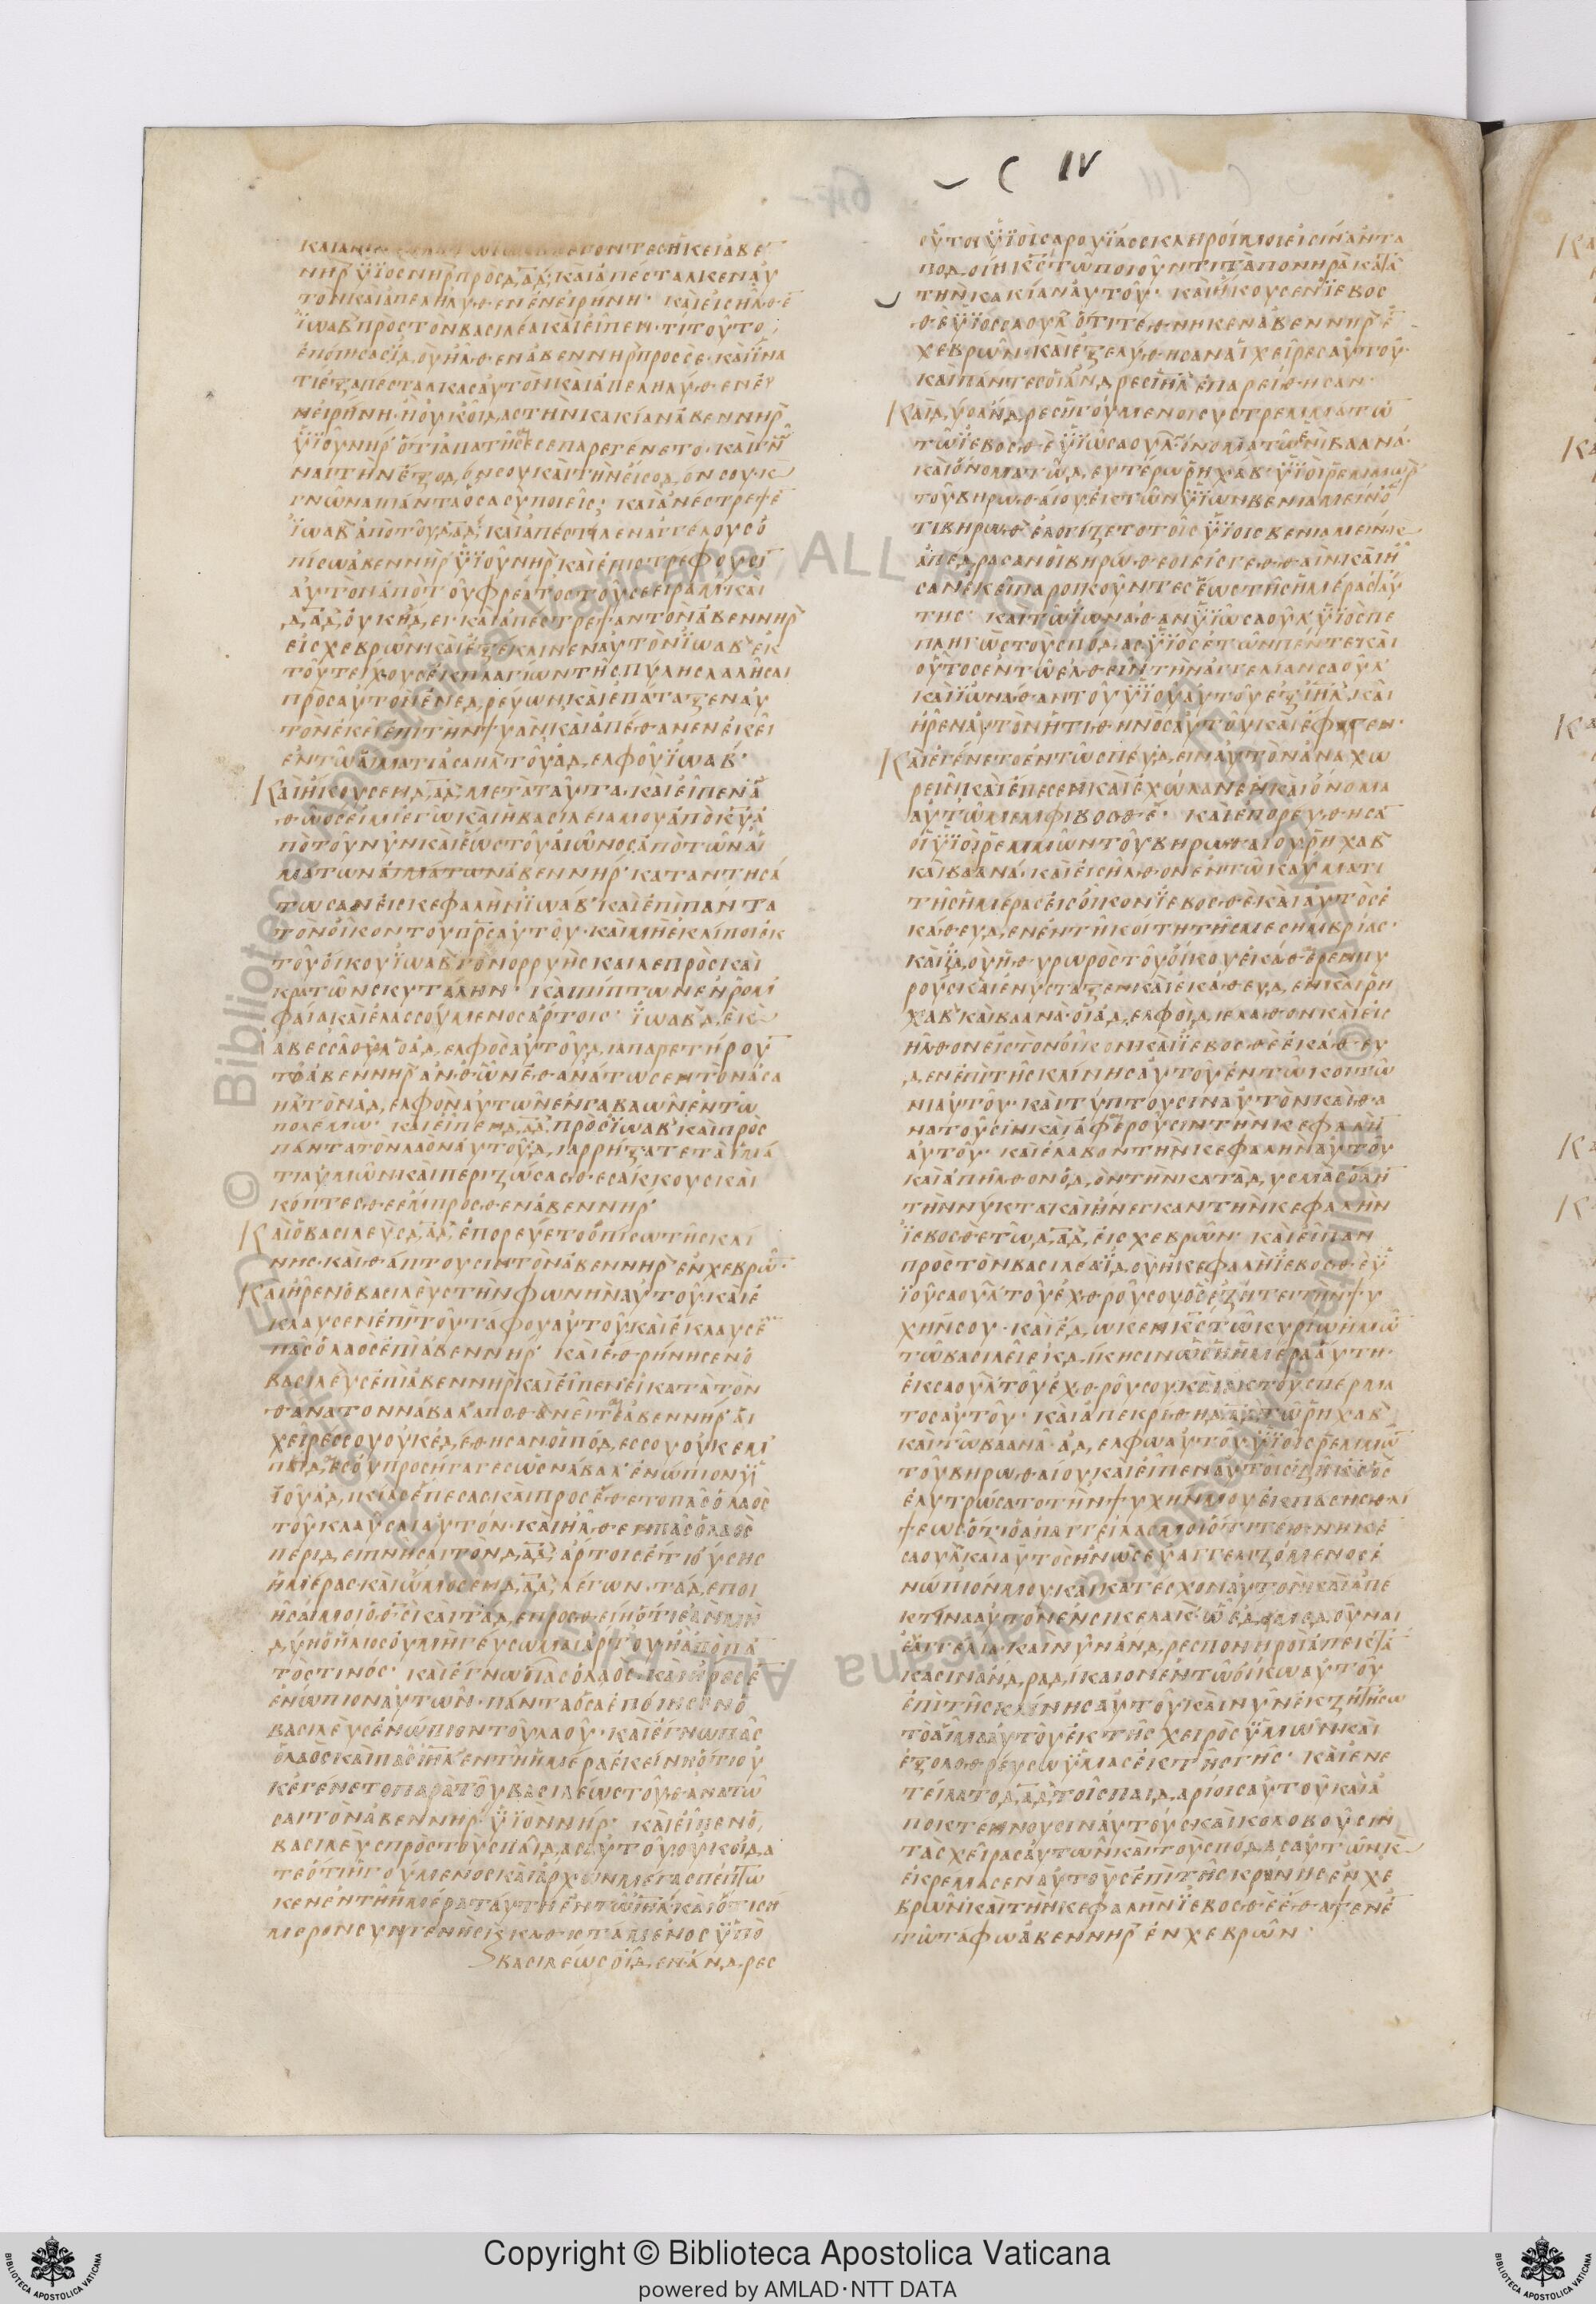 C IV
ΝΗΡ ΫΙΟΣ ΝΗΡ ΠΡΟΣ ΔΑΔ, ΚΑΙ ΑΠΕΣΤΑΛΚΕΝ ΑΥ
ΤΟΝ ΚΑΙ ΑΠΕΛΗΛΥΘΕΝ ΕΝ ΕΙΡΗΝΗ· ΚΑΙ ΕΙΣΗΛΘΕ
ΪΩΑΒ ΠΡΟΣ ΤΟΝ ΒΑΣΙΛΕΑ ΚΑΙ ΕΙΠΕΝ· ΤΙ ΤΟΥΤΟ
ΕΠΟΙΗΣΑΣ ΪΔΟΥ ΗΛΘΕΝ ΑΒΕΝΝΗΡ ΠΡΟΣ ΣΕ· ΚΑΙ ΪΝΑ
ΤΙ ΕΞΑΠΕΣΤΑΛΚΑΣ ΑΥΤΟΝ ΚΑΙ ΑΠΕΛΗΛΥΘΕΝ Ε
Ν ΕΙΡΗΝΗ· Η ΟΥΚ ΟΙΔΑΣ ΤΗΝ ΚΑΚΙΑΝ ΑΒΕΝΝΗΡ
ΓΝΩΝΑΙ ΠΑΝΤΑ ΟΣΑ ΣΥ ΠΟΙΕΙΣ; ΚΑΙ ΑΝΕΣΤΡΕΨΕ
ΪΩΑΒ ΑΠΟ ΤΟΥ ΔΑΔ, ΚΑΙ ΑΠΕΣΤΙΛΕΝ ΑΓΓΕΛΟΥΣ Ο
ΠΙΣΩ ΑΒΕΝΝΗΡ ΫΙΟΥ ΝΗΡ ΚΑΙ ΕΠΙΣΤΡΕΦΟΥΣΙ
ΑΥΤΟΝ ΑΠΟ ΤΟΥ ΦΡΕΑΤΟΣ ΤΟΥ ΣΕΕΙΡΑΜ· ΚΑΙ
ΔΑΔ, ΟΥΚ ΗΔΕΙ ΚΑΙ ΑΠΕΣΤΡΕΨΑΝ ΤΟΝ ΑΒΕΝΝΗΡ
ΕΙΣ ΧΕΒΡΩΝ ΚΑΙ ΕΞΕΚΛΙΝΕΝ ΑΥΤΟΝ ΪΩΑΒ ΕΚ
ΤΟΥ ΤΕΙΧΟΥΣ ΕΚ ΠΛΑΓΙΩΝ ΤΗΣ ΠΥΛΗΣ ΛΑΛΗΣΑΙ
ΠΡΟΣ ΑΥΤΟΝ ΕΝΕΔΡΕΥΩΝ ΚΑΙ ΕΠΑΤΑΞΕΝ ΑΥ
ΤΟΝ ΕΚΕΙ ΕΠΙ ΤΗΝ ΨΥΑΝ ΚΑΙ ΑΠΕΘΑΝΕΝ ΕΚΕΙ
ΕΝ ΤΩ ΑΙΜΑΤΙ ΑΣΑΗΛ ΤΟΥ ΑΔΕΛΦΟΥ ΪΩΑΒ·
ΚΑΙ ΗΚΟΥΣΕΝ ΔΑΔ, ΜΕΤΑ ΤΑΥΤΑ· ΚΑΙ ΕΙΠΕΝ Α
ΘΩΟΣ ΕΙΜΙ ΕΓΩ ΚΑΙ Η ΒΑΣΙΛΕΙΑ ΜΟΥ ΑΠΟ ΚΥ Α
ΠΟ ΤΟΥ ΝΥΝ ΚΑΙ ΕΩΣ ΤΟΥ ΑΙΩΝΟΣ ΑΠΟ ΤΩΝ ΑΙ
ΜΑΤΩΝ ΑΙΜΑΤΩΝ ΑΒΕΝΝΗΡ· ΚΑΤΑΝΤΗΣΑ
ΤΩΣΑΝ ΕΙΣ ΚΕΦΑΛΗΝ ΪΩΑΒ ΚΑΙ ΕΠΙ ΠΑΝΤΑ
ΤΟΝ ΟΙΚΟΝ ΤΟΥ ΠΡΣ ΑΥΤΟΥ· ΚΑΙ ΜΗ ΕΚΛΙΠΟΙ ΕΚ
ΤΟΥ ΟΙΚΟΥ ΪΩΑΒ ΓΟΝΟΡΡΥΗΣ ΚΑΙ ΛΕΠΡΟΣ ΚΑΙ
ΚΡΑΤΩΝ ΣΚΥΤΑΛΗΝ· ΚΑΙ ΠΙΠΤΩΝ ΕΝ ΡΟΜ
ΦΑΙΑ ΚΑΙ ΕΛΑΣΣΟΥΜΕΝΟΣ ΑΡΤΟΙΣ· ΪΩΑΒ ΔΕ Κ
ΑΒΕΣΣΑ Ο ΑΔΕΛΦΟΣ ΑΥΤΟΥ ΔΙΑΠΑΡΕΤΗΡΟΥ
ΤΟ ΑΒΕΝΝΗΡ ΑΝΘ ΩΝ ΕΘΑΝΑΤΩΣΕΝ ΤΟΝ ΑΣΑ
ΗΛ ΤΟΝ ΑΔΕΛΦΟΝ ΑΥΤΩΝ ΕΝ ΓΑΒΑΩΝ ΕΝ ΤΩ
ΠΟΛΕΜΩ· ΚΑΙ ΕΙΠΕΝ ΔΑΔ ΠΡΟΣ ΪΩΑΒ ΚΑΙ ΠΡΟΣ
ΠΑΝΤΑ ΤΟΝ ΛΑΟΝ ΑΥΤΟΥ ΔΙΑΡΡΗΞΑΤΕ ΤΑ ΙΜΑ
ΤΙΑ ΥΜΩΝ ΚΑΙ ΠΕΡΙΖΩΣΑΣΘΕ ΣΑΚΚΟΥΣ ΚΑΙ
ΚΟΠΤΕΣΘΕ ΕΜΠΡΟΣΘΕΝ ΑΒΕΝΝΗΡ·
ΚΑΙ Ο ΒΑΣΙΛΕΥΣ ΔΑΔ, ΕΠΟΡΕΥΕΤΟ ΟΠΙΣΩ ΤΗΣ ΚΛΙ
ΝΗΣ· ΚΑΙ ΘΑΠΤΟΥΣΙΝ ΤΟΝ ΑΒΕΝΝΗΡ ΕΝ ΧΕΒΡΩ·
ΚΑΙ ΗΡΕΝ Ο ΒΑΣΙΛΕΥΣ ΤΗΝ ΦΩΝΗΝ ΑΥΤΟΥ ΚΑΙ Ε
ΚΛΑΥΣΕΝ ΕΠΙ ΤΟΥ ΤΑΦΟΥ ΑΥΤΟΥ ΚΑΙ ΕΚΛΑΥΣΕ
ΠΑΣ Ο ΛΑΟΣ ΕΠΙ ΑΒΕΝΝΗΡ· ΚΑΙ ΕΘΡΗΝΗΣΕΝ Ο
ΒΑΣΙΛΕΥΣ ΕΠΙ ΑΒΕΝΝΗΡ ΚΑΙ ΕΙΠΕΝ ΕΙ ΚΑΤΑ ΤΟΝ
ΘΑΝΑΤΟΝ ΝΑΒΑΛ ΑΠΟΘΑΝΕΙΤΑΙ ΑΒΕΝΝΗΡ ΑΙ
ΧΕΙΡΕΣ ΣΟΥ ΟΥΚ ΕΔΕΘΗΣΑΝ ΟΙ ΠΟΔΕΣ ΣΟΥ ΟΥΚ ΕΜ
ΠΕΔΑΙΣ ΟΥ ΠΡΟΣΗΓΑΓΕΣ ΩΣ ΝΑΒΑΛ ΕΝΩΠΙΟΝ ΫΙ
ΟΥ ΑΔΙΚΙΑΣ ΕΠΕΣΑΣ ΚΑΙ ΠΡΟΣΕΘΕΤΟ ΠΑΣ Ο ΛΑΟΣ
ΤΟΥ ΚΛΑΥΣΑΙ ΑΥΤΟΝ· ΚΑΙ ΗΛΘΕΝ ΠΑΣ Ο ΛΑΟΣ
ΠΕΡΙΔΕΙΠΝΗΣΑΙ ΤΟΝ ΔΑΔ, ΑΡΤΟΙΣ ΕΤΙ ΟΥΣΗΣ
ΗΜΕΡΑΣ· ΚΑΙ ΩΜΟΣΕΝ ΔΑΔ, ΛΕΓΩΝ· ΤΑΔΕ ΠΟΙ
ΔΥΗ Ο ΗΛΙΟΣ ΟΥ ΜΗ ΓΕΥΣΩΜΑΙ ΑΡΤΟΥ Η ΑΠΟ ΠΑ
ΤΟΣ ΤΙΝΟΣ· ΚΑΙ ΕΓΝΩ ΠΑΣ Ο ΛΑΟΣ· ΚΑΙ ΗΡΕΣΕ
ΕΝΩΠΙΟΝ ΑΥΤΩΝ· ΠΑΝΤΑ ΟΣΑ ΕΠΟΙΗΣΕΝ Ο
ΒΑΣΙΛΕΥΣ ΕΝΩΠΙΟΝ ΤΟΥ ΛΑΟΥ· ΚΑΙ ΕΓΝΩ ΠΑΣ
Ο ΛΑΟΣ ΚΑΙ ΠΑΣ ΙΗΛ ΕΝ ΤΗ ΗΜΕΡΑ ΕΚΕΙΝΗ ΟΤΙ ΟΥ
Κ ΕΓΕΝΕΤΟ ΠΑΡΑ ΤΟΥ ΒΑΣΙΛΕΩΣ ΤΟΥ ΘΑΝΑΤΩ
ΣΑΙ ΤΟΝ ΑΒΕΝΝΗΡ· ΫΙΟΝ ΝΗΡ· ΚΑΙ ΕΙΠΕΝ Ο
ΒΑΣΙΛΕΥΣ ΠΡΟΣ ΤΟΥΣ ΠΑΙΔΑΣ ΑΥΤΟΥ ΟΥΚ ΟΙΔΑ
ΤΕ ΟΤΙ ΗΓΟΥΜΕΝΟΣ ΚΑΙ ΑΡΧΩΝ ΜΕΓΑΣ ΠΕΠΤΩ
ΚΕΝ ΕΝ ΤΗ ΗΜΕΡΑ ΤΑΥΤΗ ΕΝ ΤΩ ΙΗΛ ΚΑΙ ΟΤΙ ΣΗ
ΜΕΡΟΝ ΣΥΝΓΕΝΗΣ ΚΑΘΙΣΤΑΜΕΝΟΣ ΫΠΟ
ΒΑΣΙΛΕΩΣ ΟΙ ΔΕ ΑΝΔΡΕΣ
ΟΥΤΟΙ ΫΙΟΙ ΣΑΡΟΥΪΑΣ ΣΚΛΗΡΟΙ ΜΟΙ ΕΙΣΙΝ ΑΝΤΑ
ΠΟΔΟΙΗ ΚΣ ΤΩ ΠΟΙΟΥΝΤΙ ΤΑ ΠΟΝΗΡΑ ΚΑΤΑ
ΤΗΝ ΚΑΚΙΑΝ ΑΥΤΟΥ· ΚΑΙ ΗΚΟΥΣΕΝ ΪΕΒΟΣ
ΘΕ ΫΙΟΣ ΣΑΟΥΛ ΟΤΙ ΤΕΘΝΗΚΕΝ ΑΒΕΝΝΗΡ Ε
ΧΕΒΡΩΝ· ΚΑΙ ΕΞΕΛΥΘΗΣΑΝ ΑΙ ΧΕΙΡΕΣ ΑΥΤΟΥ·
ΚΑΙ ΠΑΝΤΕΣ ΟΙ ΑΝΔΡΕΣ ΙΗΛ ΕΠΑΡΕΙΘΗΣΑΝ·
ΚΑΙ ΔΥΟ ΑΝΔΡΕΣ ΗΓΟΥΜΕΝΟΙ ΣΥΣΤΡΕΜΜΑΤΩ
ΤΩ ΪΕΒΟΣΘΕ ΫΙΩ ΣΑΟΥΛ· ΟΝΟΜΑ ΤΩ ΕΝΙ ΒΑΑΝΑ·
ΚΑΙ ΟΝΟΜΑ ΤΩ ΔΕΥΤΕΡΩ ΡΗΧΑΒ· ΫΙΟΙ ΡΕΜΜΩΝ
ΤΟΥ ΒΗΡΩΘΑΙΟΥ ΕΚ ΤΩΝ ΫΙΩΝ ΒΕΝΙΑΜΕΙΝ Ο
ΤΙ ΒΗΡΩΘ ΕΛΟΓΙΖΕΤΟ ΤΟΙΣ ΫΙΟΙΣ ΒΕΝΙΑΜΕΙΝ Κ
ΑΠΕΔΡΑΣΑΝ ΟΙ ΒΗΡΩΘΕΟΙ ΕΙΣ ΓΕΘΘΑΙΝ ΚΑΙ Η
ΣΑΝ ΕΚΕΙ ΠΑΡΟΙΚΟΥΝΤΕΣ ΕΩΣ ΤΗΣ ΗΜΕΡΑΣ ΤΑΥ
ΤΗΣ· ΚΑΙ ΤΩ ΪΩΝΑΘΑΝ ΫΙΩ ΣΑΟΥΛ ΫΙΟΣ ΠΕ
ΠΛΗΓΩΣ ΤΟΥΣ ΠΟΔΑΣ ΫΙΟΣ ΕΤΩΝ ΠΕΝΤΕ ΚΑΙ
ΟΥΤΟΣ ΕΝ ΤΩ ΕΛΘΕΙΝ ΤΗΝ ΑΓΓΕΛΙΑΝ ΣΑΟΥΛ
ΚΑΙ ΪΩΝΑΘΑΝ ΤΟΥ ΫΙΟΥ ΑΥΤΟΥ ΕΞ ΙΗΛ, ΚΑΙ
ΗΡΕΝ ΑΥΤΟΝ Η ΤΙΘΗΝΟΣ ΑΥΤΟΥ ΚΑΙ ΕΦΥΓΕΝ·
ΚΑΙ ΕΓΕΝΕΤΟ ΕΝ ΤΩ ΣΠΕΥΔΕΙΝ ΑΥΤΟΝ ΑΝΑΧΩ
ΡΕΙΝ ΚΑΙ ΕΠΕΣΕΝ ΚΑΙ ΕΧΩΛΑΝΕΝ ΚΑΙ ΟΝΟΜΑ
ΑΥΤΩ ΜΕΜΦΙΒΟΣΘΕ· ΚΑΙ ΕΠΟΡΕΥΘΗΣΑ
ΟΙ ΫΙΟΙ ΡΕΜΜΩΝ ΤΟΥ ΒΗΡΩΘΑΙΟΥ ΡΗΧΑΒ
ΚΑΙ ΒΑΑΝΑ· ΚΑΙ ΕΙΣΗΛΘΟΝ ΕΝ ΤΩ ΚΑΥΜΑΤΙ
ΤΗΣ ΗΜΕΡΑΣ ΕΙΣ ΟΙΚΟΝ ΪΕΒΟΣΘΕ ΚΑΙ ΑΥΤΟΣ Ε
ΚΑΘΕΥΔΕΝ ΕΝ ΤΗ ΚΟΙΤΗ ΤΗΣ ΜΕΣΗΜΒΡΙΑΣ·
ΧΑΒ ΚΑΙ ΒΑΑΝΑ· ΟΙ ΑΔΕΛΦΟΙ ΔΙΕΛΑΘΟΝ ΚΑΙ ΕΙΣ
ΗΛΘΟΝ ΕΙΣ ΤΟΝ ΟΙΚΟΝ ΚΑΙ ΪΕΒΟΣΘΕ ΕΚΑΘΕΥ
ΔΕΝ ΕΠΙ ΤΗΣ ΚΛΙΝΗΣ ΑΥΤΟΥ ΕΝ ΤΩ ΚΟΙΤΩ
ΝΙ ΑΥΤΟΥ· ΚΑΙ ΤΥΠΤΟΥΣΙΝ ΑΥΤΟΝ ΚΑΙ ΘΑ
ΝΑΤΟΥΣΙΝ ΚΑΙ ΑΦΑΙΡΟΥΣΙΝ ΤΗΝ ΚΕΦΑΛΗ
ΑΥΤΟΥ· ΚΑΙ ΕΛΑΒΟΝ ΤΗΝ ΚΕΦΑΛΗΝ ΑΥΤΟΥ
ΚΑΙ ΑΠΗΛΘΟΝ ΟΔΟΝ ΤΗΝ ΚΑΤΑ ΔΥΣΜΑΣ ΟΛΗ
ΤΗΝ ΝΥΚΤΑ ΚΑΙ ΗΝΕΓΚΑΝ ΤΗΝ ΚΕΦΑΛΗΝ
ΪΕΒΟΣΘΕ ΤΩ ΔΑΔ, ΕΙΣ ΧΕΒΡΩΝ· ΚΑΙ ΕΙΠΑΝ
ΠΡΟΣ ΤΟΝ ΒΑΣΙΛΕΑ ΪΔΟΥ Η ΚΕΦΑΛΗ ΪΕΒΟΣΘΕ Ϋ
ΪΟΥ ΣΑΟΥΛ ΤΟΥ ΕΧΘΡΟΥ ΣΟΥ ΟΣ ΕΖΗΤΕΙ ΤΗΝ ΨΥ
ΧΗΝ ΣΟΥ· ΚΑΙ ΕΔΩΚΕΝ ΚΣ ΤΩ ΚΥΡΙΩ ΗΜΩ
ΤΩ ΒΑΣΙΛΕΙ ΕΚΔΙΚΗΣΙΝ ΩΣ Η ΗΜΕΡΑ ΑΥΤΗ·
ΕΚ ΣΑΟΥΛ ΤΟΥ ΕΧΘΡΟΥ ΣΟΥ ΚΑΙ ΕΚ ΤΟΥ ΣΠΕΡΜΑ
ΤΟΣ ΑΥΤΟΥ· ΚΑΙ ΑΠΕΚΡΙΘΗ ΔΑΔ ΤΩ ΡΗΧΑΒ
ΚΑΙ ΤΩ ΒΑΑΝΑ· ΑΔΕΛΦΩ ΑΥΤΟΥ ΫΙΟΙΣ ΡΕΜΜΩ
ΤΟΥ ΒΗΡΩΘΑΙΟΥ ΚΑΙ ΕΙΠΕΝ ΑΥΤΟΙΣ ΖΗ ΚΣ ΟΣ
ΕΛΥΤΡΩΣΑΤΟ ΤΗΝ ΨΥΧΗΝ ΜΟΥ ΕΚ ΠΑΣΗΣ ΘΛΙ
ΨΕΩΣ ΟΤΙ Ο ΑΠΑΓΓΕΙΛΑΣ ΜΟΙ ΟΤΙ ΤΕΘΝΗΚΕ
ΣΑΟΥΛ ΚΑΙ ΑΥΤΟΣ ΗΝ ΩΣ ΕΥΑΓΓΕΛΙΖΟΜΕΝΟΣ Ε
ΝΩΠΙΟΝ ΜΟΥ ΚΑΙ ΚΑΤΕΣΧΟΝ ΑΥΤΟΝ ΚΑΙ ΑΠΕ
ΚΤΙΝΑ ΑΥΤΟΝ ΕΝ ΣΙΚΕΛΑΚ Ω ΕΔΕΙ ΜΕ ΔΟΥΝΑΙ
ΚΑΣΙΝ ΑΝΔΡΑ ΔΙΚΑΙΟΝ ΕΝ ΤΩ ΟΙΚΩ ΑΥΤΟΥ
ΕΠΙ ΤΗΣ ΚΛΙΝΗΣ ΑΥΤΟΥ ΚΑΙ ΝΥΝ ΕΚΖΗΤΗΣΩ
ΤΟ ΑΙΜΑ ΑΥΤΟΥ ΕΚ ΤΗΣ ΧΕΙΡΟΣ ΫΜΩΝ ΚΑΙ
ΕΞΟΛΟΘΡΕΥΣΩ ΫΜΑΣ ΕΚ ΤΗΣ ΓΗΣ· ΚΑΙ ΕΝΕ
ΤΕΙΛΑΤΟ ΔΑΔ, ΤΟΙΣ ΠΑΙΔΑΡΙΟΙΣ ΑΥΤΟΥ ΚΑΙ Α
ΠΟΚΤΕΝΝΟΥΣΙΝ ΑΥΤΟΥΣ ΚΑΙ ΚΟΛΟΒΟΥΣΙΝ
ΤΑΣ ΧΕΙΡΑΣ ΑΥΤΩΝ ΚΑΙ ΤΟΥΣ ΠΟΔΑΣ ΑΥΤΩΝ Κ
ΕΚΡΕΜΑΣΕΝ ΑΥΤΟΥΣ ΕΠΙ ΤΗΣ ΚΡΗΝΗΣ ΕΝ ΧΕ
ΒΡΩΝ ΚΑΙ ΤΗΝ ΚΕΦΑΛΗΝ ΪΕΒΟΣΘΕ ΕΘΑΨΕΝ Ε
ΤΩ ΤΑΦΩ ΑΒΕΝΝΗΡ ΕΝ ΧΕΒΡΩΝ·
Copyright © Biblioteca Apostolica Vaticana
powered by AMLAD·NTT DATA